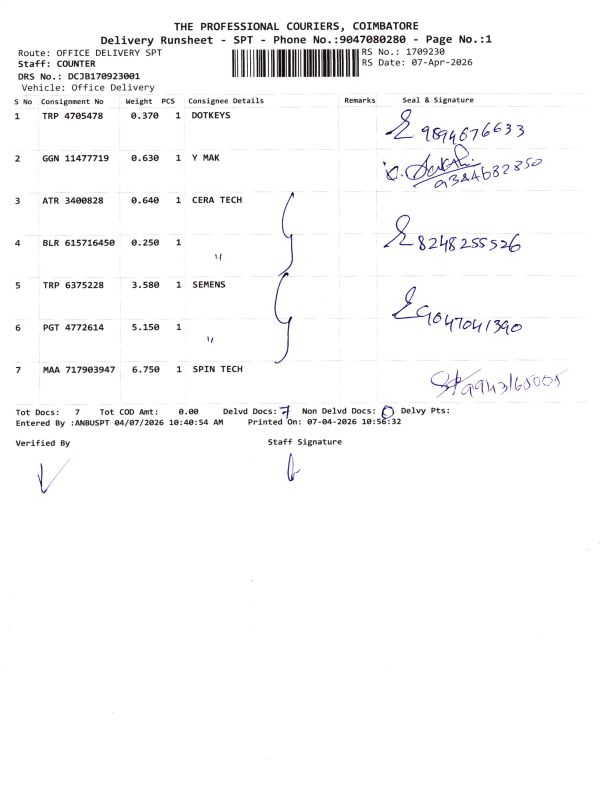 THE PROFESSIONAL COURIERS, COIMBATORE
Delivery Runsheet - SPT - Phone No.:9047080280 - Page No.:1
Route: OFFICE DELIVERY SPT RS No.: 1709230
Staff: COUNTER RS Date: 07-Apr-2026
DRS No.: DCJB170923001
Vehicle: Office Delivery
S No Consignment No Weight PCS Consignee Details Remarks Seal & Signature
1 TRP 4705478 0.370 1 DOTKEYS 9894676633
2 GGN 11477719 0.630 1 Y MAK 9384682850
3 ATR 3400828 0.640 1 CERA TECH
4 BLR 615716450 0.250 1 〃 8248255526
5 TRP 6375228 3.580 1 SEMENS
6 PGT 4772614 5.150 1 〃 9047041390
7 MAA 717903947 6.750 1 SPIN TECH 9943165005
Tot Docs: 7 Tot COD Amt: 0.00 Delvd Docs: 7 Non Delvd Docs: 0 Delvy Pts:
Entered By :ANBUSPT 04/07/2026 10:40:54 AM Printed On: 07-04-2026 10:56:32
Verified By Staff Signature